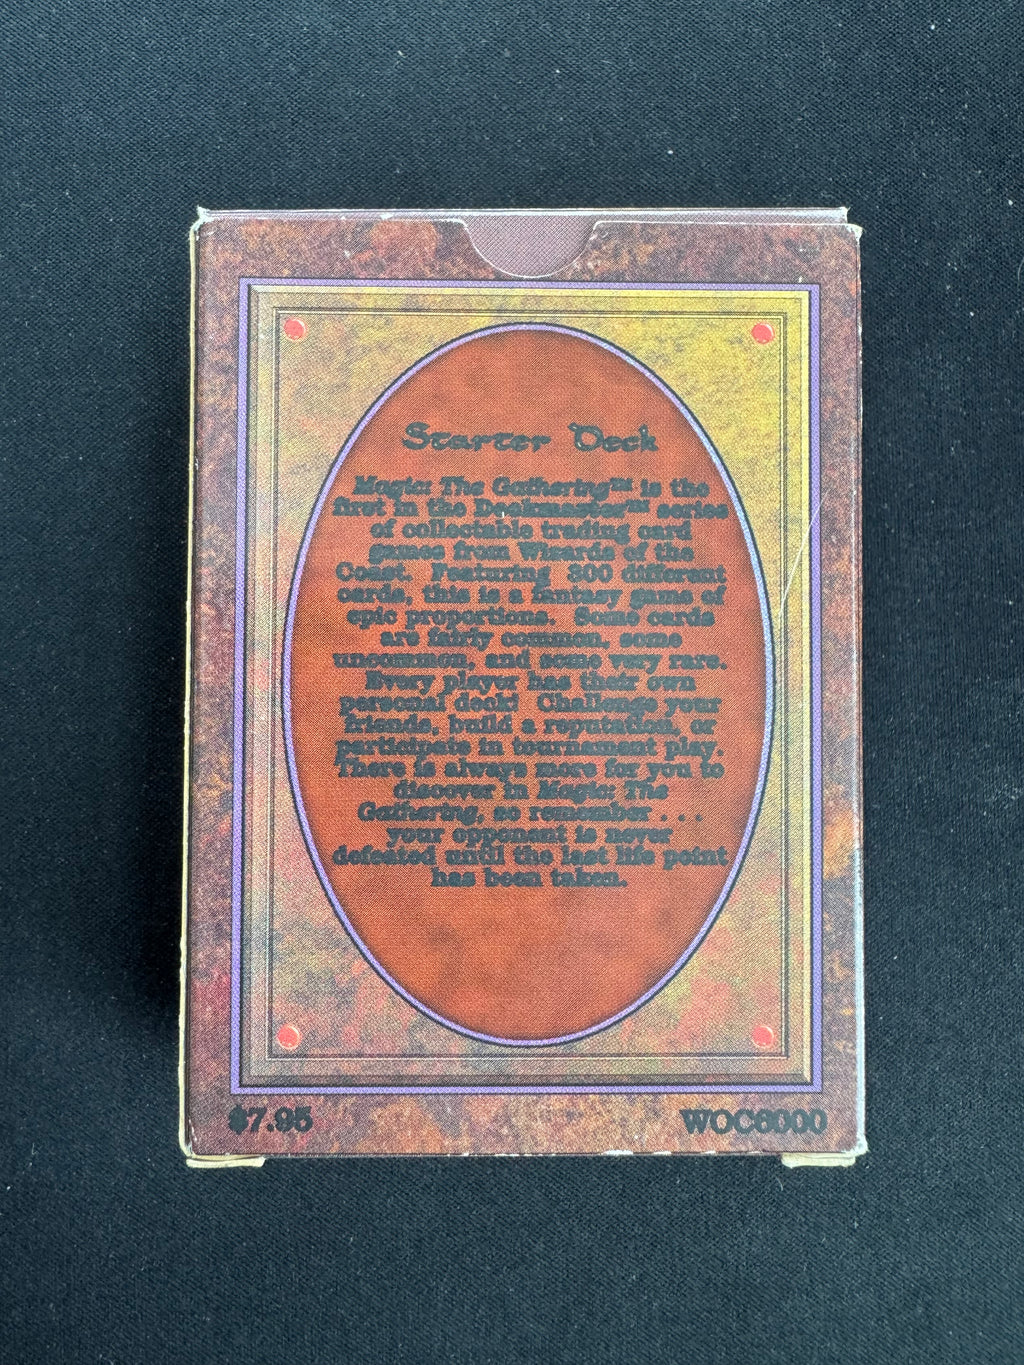 Starter Deck
Magic: The Gathering™ is the
first in the Deckmaster™ series
of collectable trading card
games from Wizards of the
Coast. Featuring 300 different
cards, this is a fantasy game of
epic proportions. Some cards
are fairly common, some
uncommon, and some very rare.
Every player has their own
personal deck! Challenge your
friends, build a reputation, or
participate in tournament play.
There is always more for you to
discover in Magic: The
Gathering, so remember . . .
your opponent is never
defeated until the last life point
has been taken.
$7.95
WOC6000